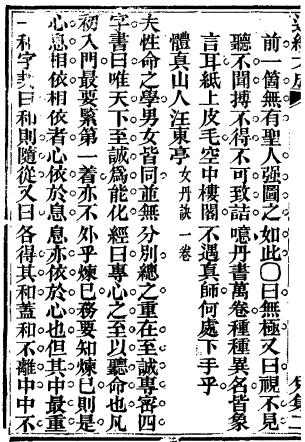 前一箇無有聖人强圖之如此〇曰無極又曰視不見
聽不聞摶不得不可致詰噫丹書萬卷種種異名皆象
言耳紙上皮毛空中樓閣不遇真師何處下手乎
體真山人汪東亭 女丹訣一卷
夫性命之學男女皆同並無分別總之重在至誠專密四
字書曰唯天下至誠爲能化經曰專心之至以聽命也凡
初入門最要緊第一着亦不外乎煉己務要知煉己則是
心息相依相依者心依於息息亦依於心也但其中最重
一和字契曰和則隨從又曰各得其和蓋和不離中中不